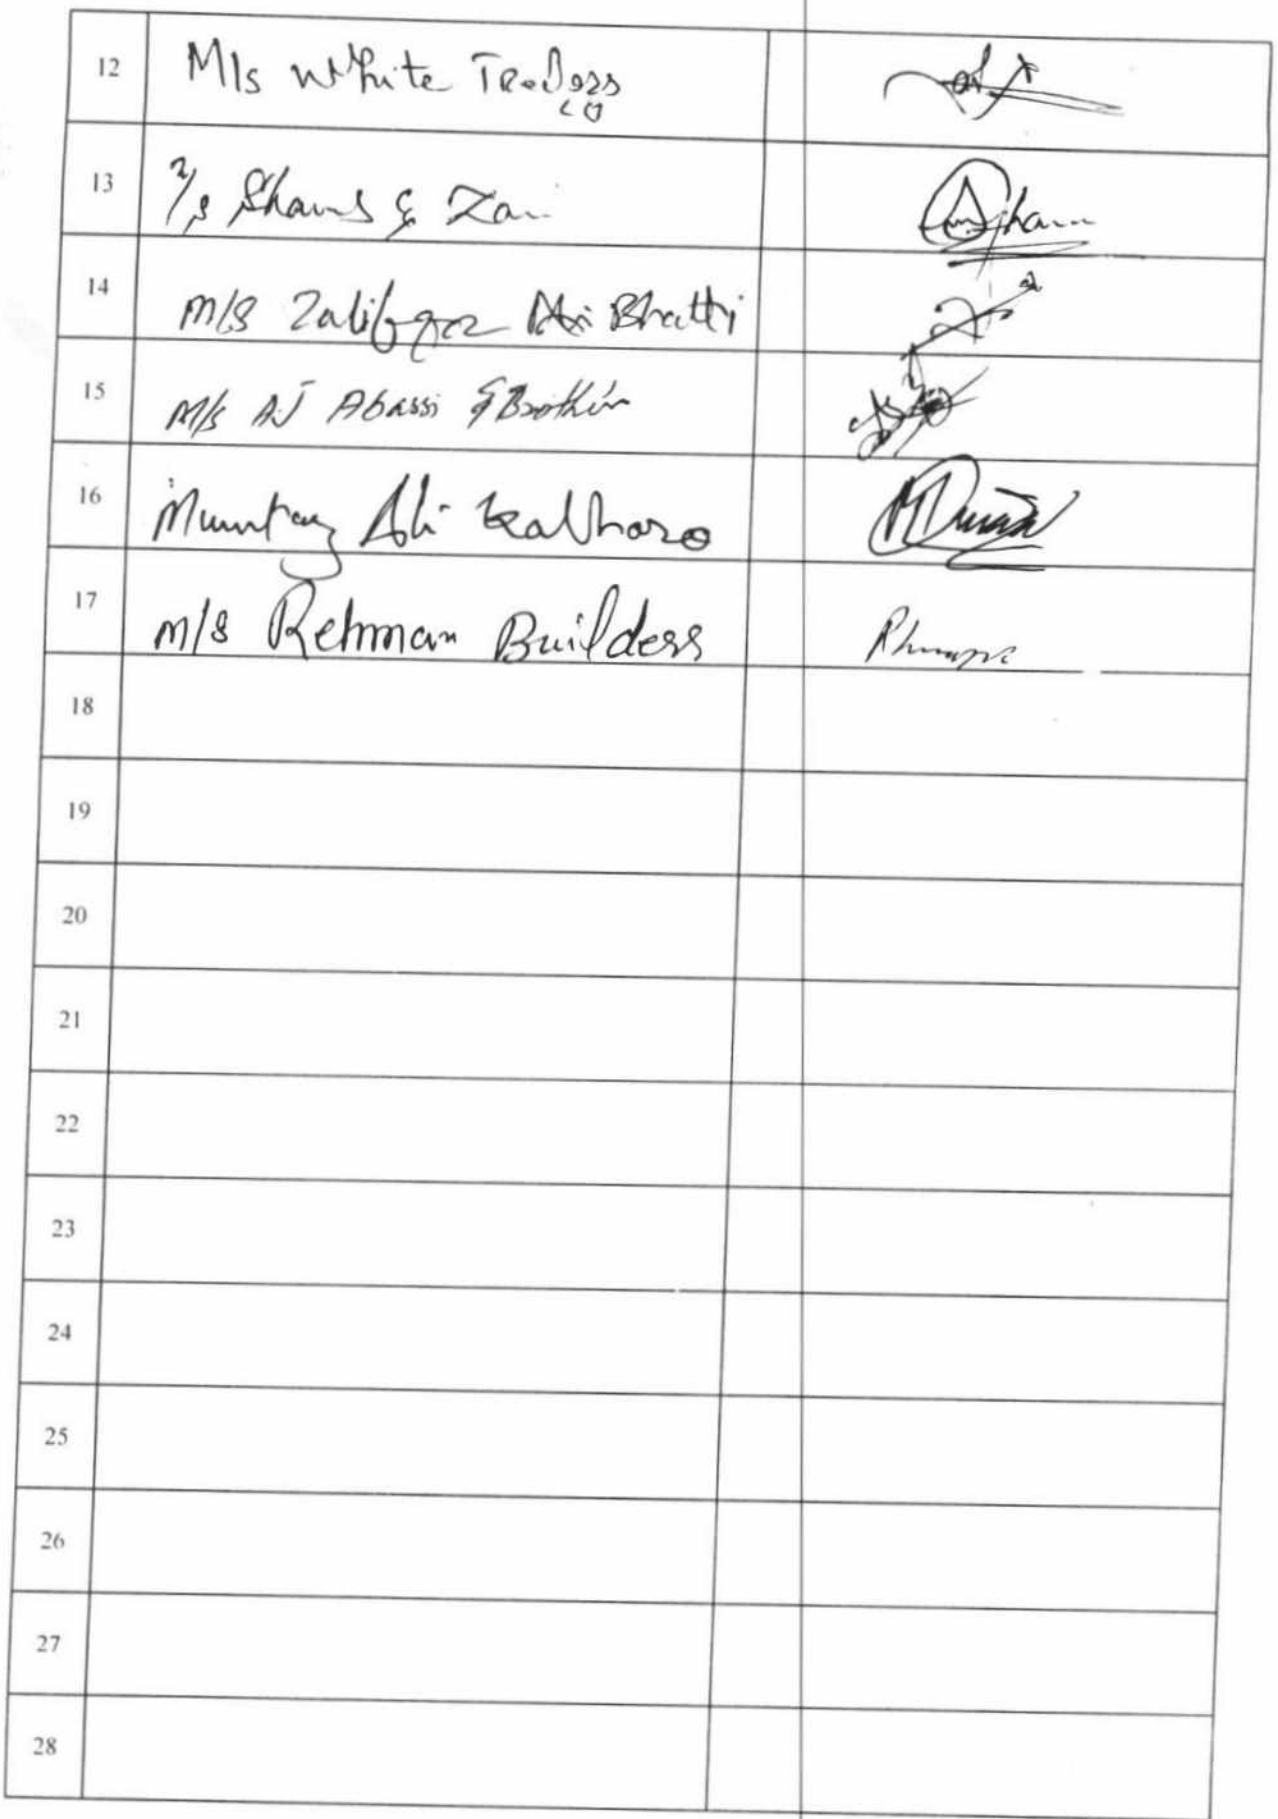 12 M/s White Traders
13 M/s Shams &
14 M/s Zulifqar Ali Bhatti
15 M/s AJ Abassi & Brothers
16 Mumtaz Ali Kalhoro
17 M/s Rehman Builders
18
19
20
21
22
23
24
25
26
27
28